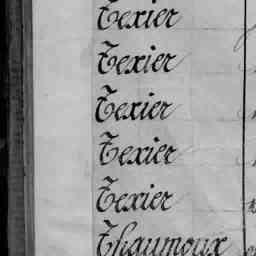 Texier
Texier
Texier
Texier
Texier
Thaumoux